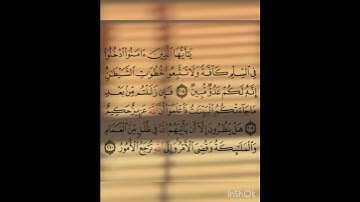 يَٰٓأَيُّهَا ٱلَّذِينَ ءَامَنُوا۟ ٱدْخُلُوا۟
فِى ٱلسِّلْمِ كَآفَّةً وَلَا تَتَّبِعُوا۟ خُطُوَٰتِ ٱلشَّيْطَٰنِ
إِنَّهُۥ لَكُمْ عَدُوٌّ مُّبِينٌ ۝٢٠٨ فَإِن زَلَلْتُم مِّنۢ بَعْدِ
مَا جَآءَتْكُمُ ٱلْبَيِّنَٰتُ فَٱعْلَمُوٓا۟ أَنَّ ٱللَّهَ عَزِيزٌ حَكِيمٌ
۝٢٠٩ هَلْ يَنظُرُونَ إِلَّآ أَن يَأْتِيَهُمُ ٱللَّهُ فِى ظُلَلٍ مِّنَ ٱلْغَمَامِ
وَٱلْمَلَٰٓئِكَةُ وَقُضِىَ ٱلْأَمْرُ وَإِلَى ٱللَّهِ تُرْجَعُ ٱلْأُمُورُ ۝٢١٠
InShOt